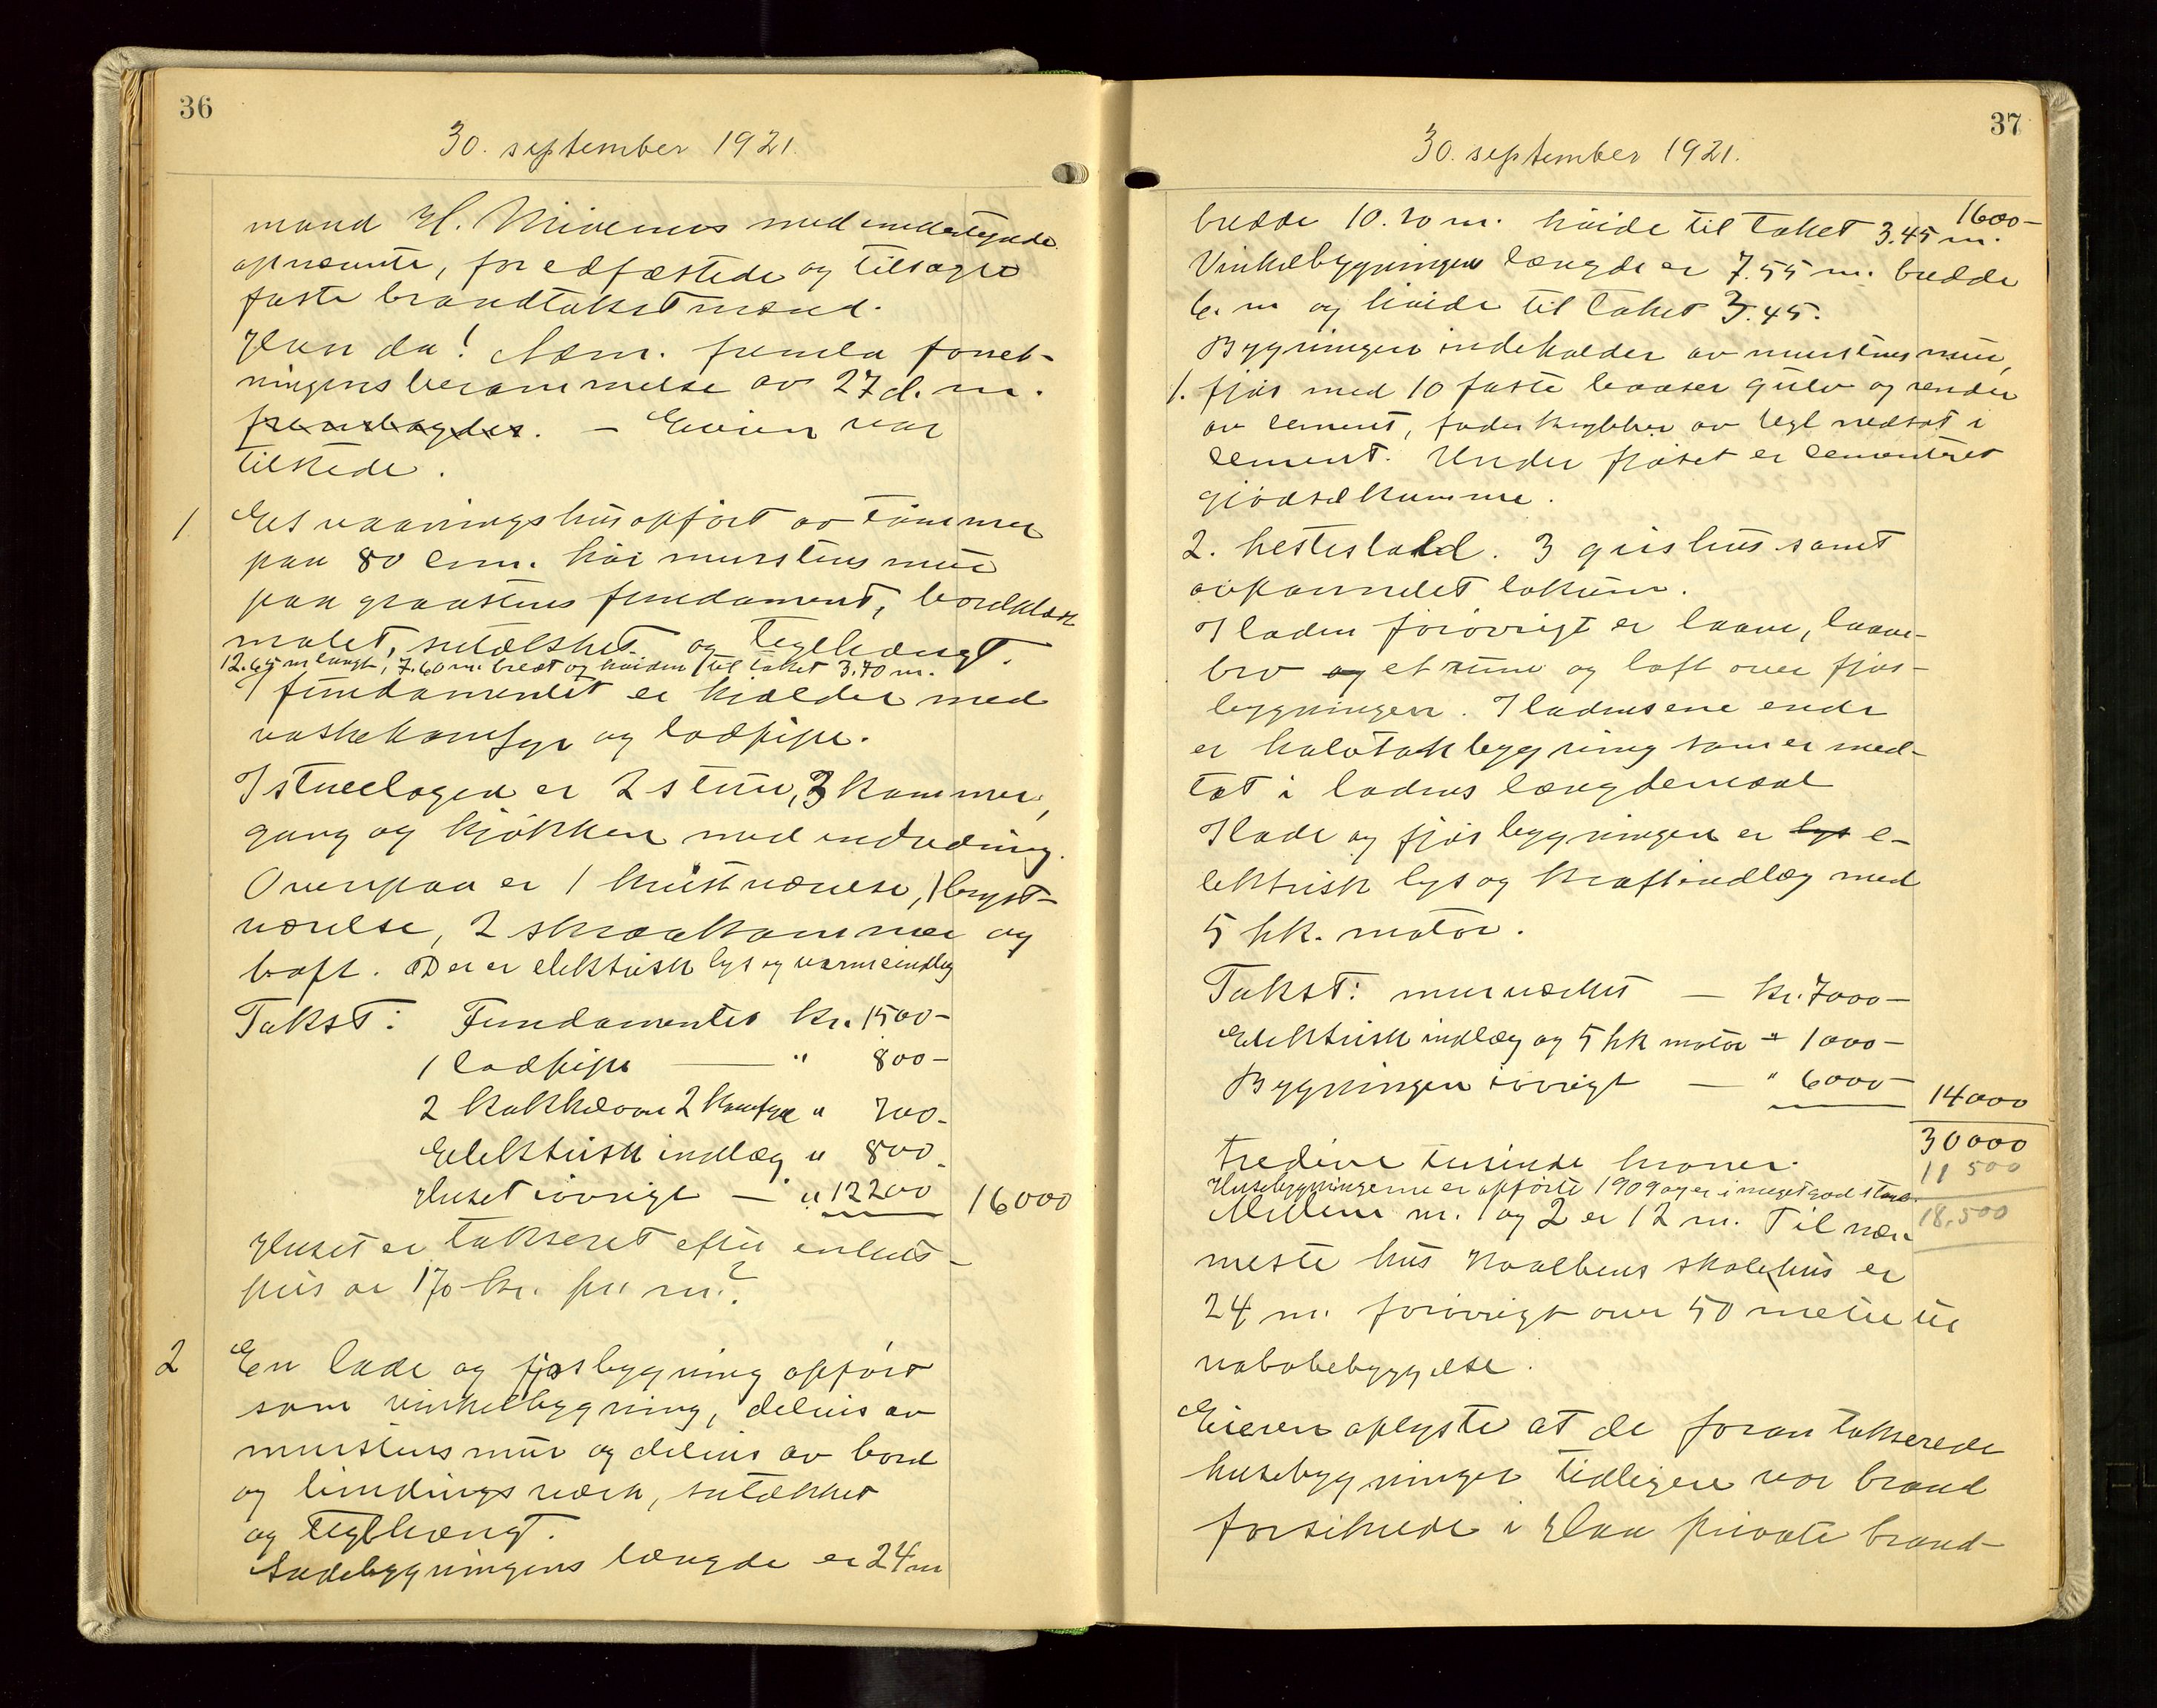 36
30. september 1921.
mand H. med undertegnede
opnævnte, for edfæstede og tilsagte
faste brandtakstmænd.
Hvorda! Næm. fremla forret-
ningens berammelse av 27 d. m.
fremlagdes. — Eieren var
tilstede.
1 Et vaaningshus opført av tømmer
paa 80 cm. høi murstens mur
paa graastens fundament, bordklædt
malet, sutækket og teglhængt.
12.65 m langt, 7.60 m. bredt og høiden til taket 3.70 m.
I fundamentet er kjelder med
vaskekomfyr og lodpipe.
I stueetagen er 2 stuer, 3 kammer,
gang og kjøkken med indredning.
Ovenpaa er 1 kvistværelse, 1 bryst-
værelse, 2 skraakammer og
loft. Der er elektrisk lys og varmeindlæg
Takst: Fundamentet kr. 1500-
1 lodpipe — " 800-
2 kakkelovne 2 komfyr " 700-
Elektrisk indlæg " 800-
Huset iøvrigt — " 12200 16000
Huset er takseret efter enhets-
pris av 170 kr. pr. m.²
2 En lade og fjøsbygning opført
som vinkelbygning, delvis av
murstens mur og delvis av bord
og bindingsverk, sutækket
og teglhængt.
Ladebygningens længde er 24 m
37
30. september 1921.
1600-
bredde 10.20 m. høide til taket 3.45 m.
Vinkelbygningen længde er 7.55 m. bredde
6. m og høide til taket 3.45.
Bygningen indeholder av murstens mur,
1. fjøs med 10 faste baaser gulv og render
av cement, foderkrybber av tegl nedsat i
cement. Under fjøset er cementeret
gjødselkumme.
2. hestestald. 3 grishus samt
avpannelet lokum.
I laden forøvrigt er laave, laave-
bro og et rum og loft over fjøs-
bygningen. I ladens ene ende
er halvtakbygning som er med-
tat i ladens længdemaal
I lade og fjøsbygningen er lys e-
lektrisk lys og kraftindlæg med
5 hk. motor.
Takst: murverket — kr. 7000-
Elektrisk indlæg og 5 hk motor " 1000-
Bygningen iøvrigt — " 6000- 14000
30000
tredive tusinde kroner. 11500
Husebygningerne er opførte 1909 og er i meget god stand.
Mellem nr. 1 og 2 er 12 m. Til nær- 18.500
meste hus skolehus er
24 m. forøvrigt over 50 meter til
nabobebyggelse.
Eieren oplyste at de foran takserede
husebygninger tidligere var brand
forsikrede i Haa private brand-